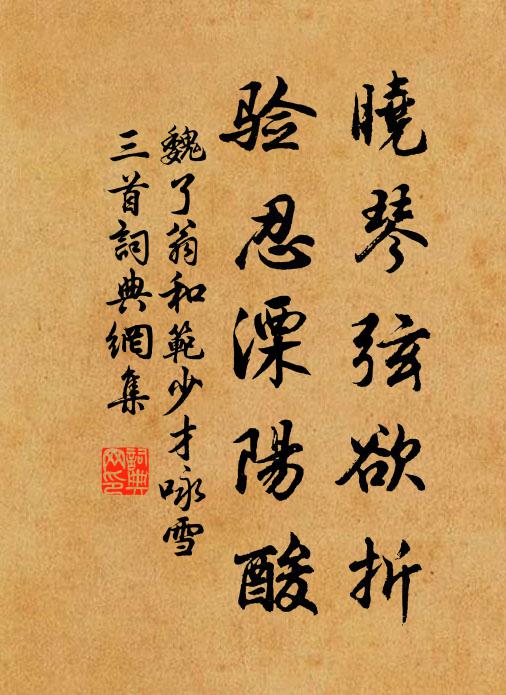 曉琴弦欲折
验忍溧陽酸
魏了翁和範少才咏雪
三首詞典網集
詞典網印